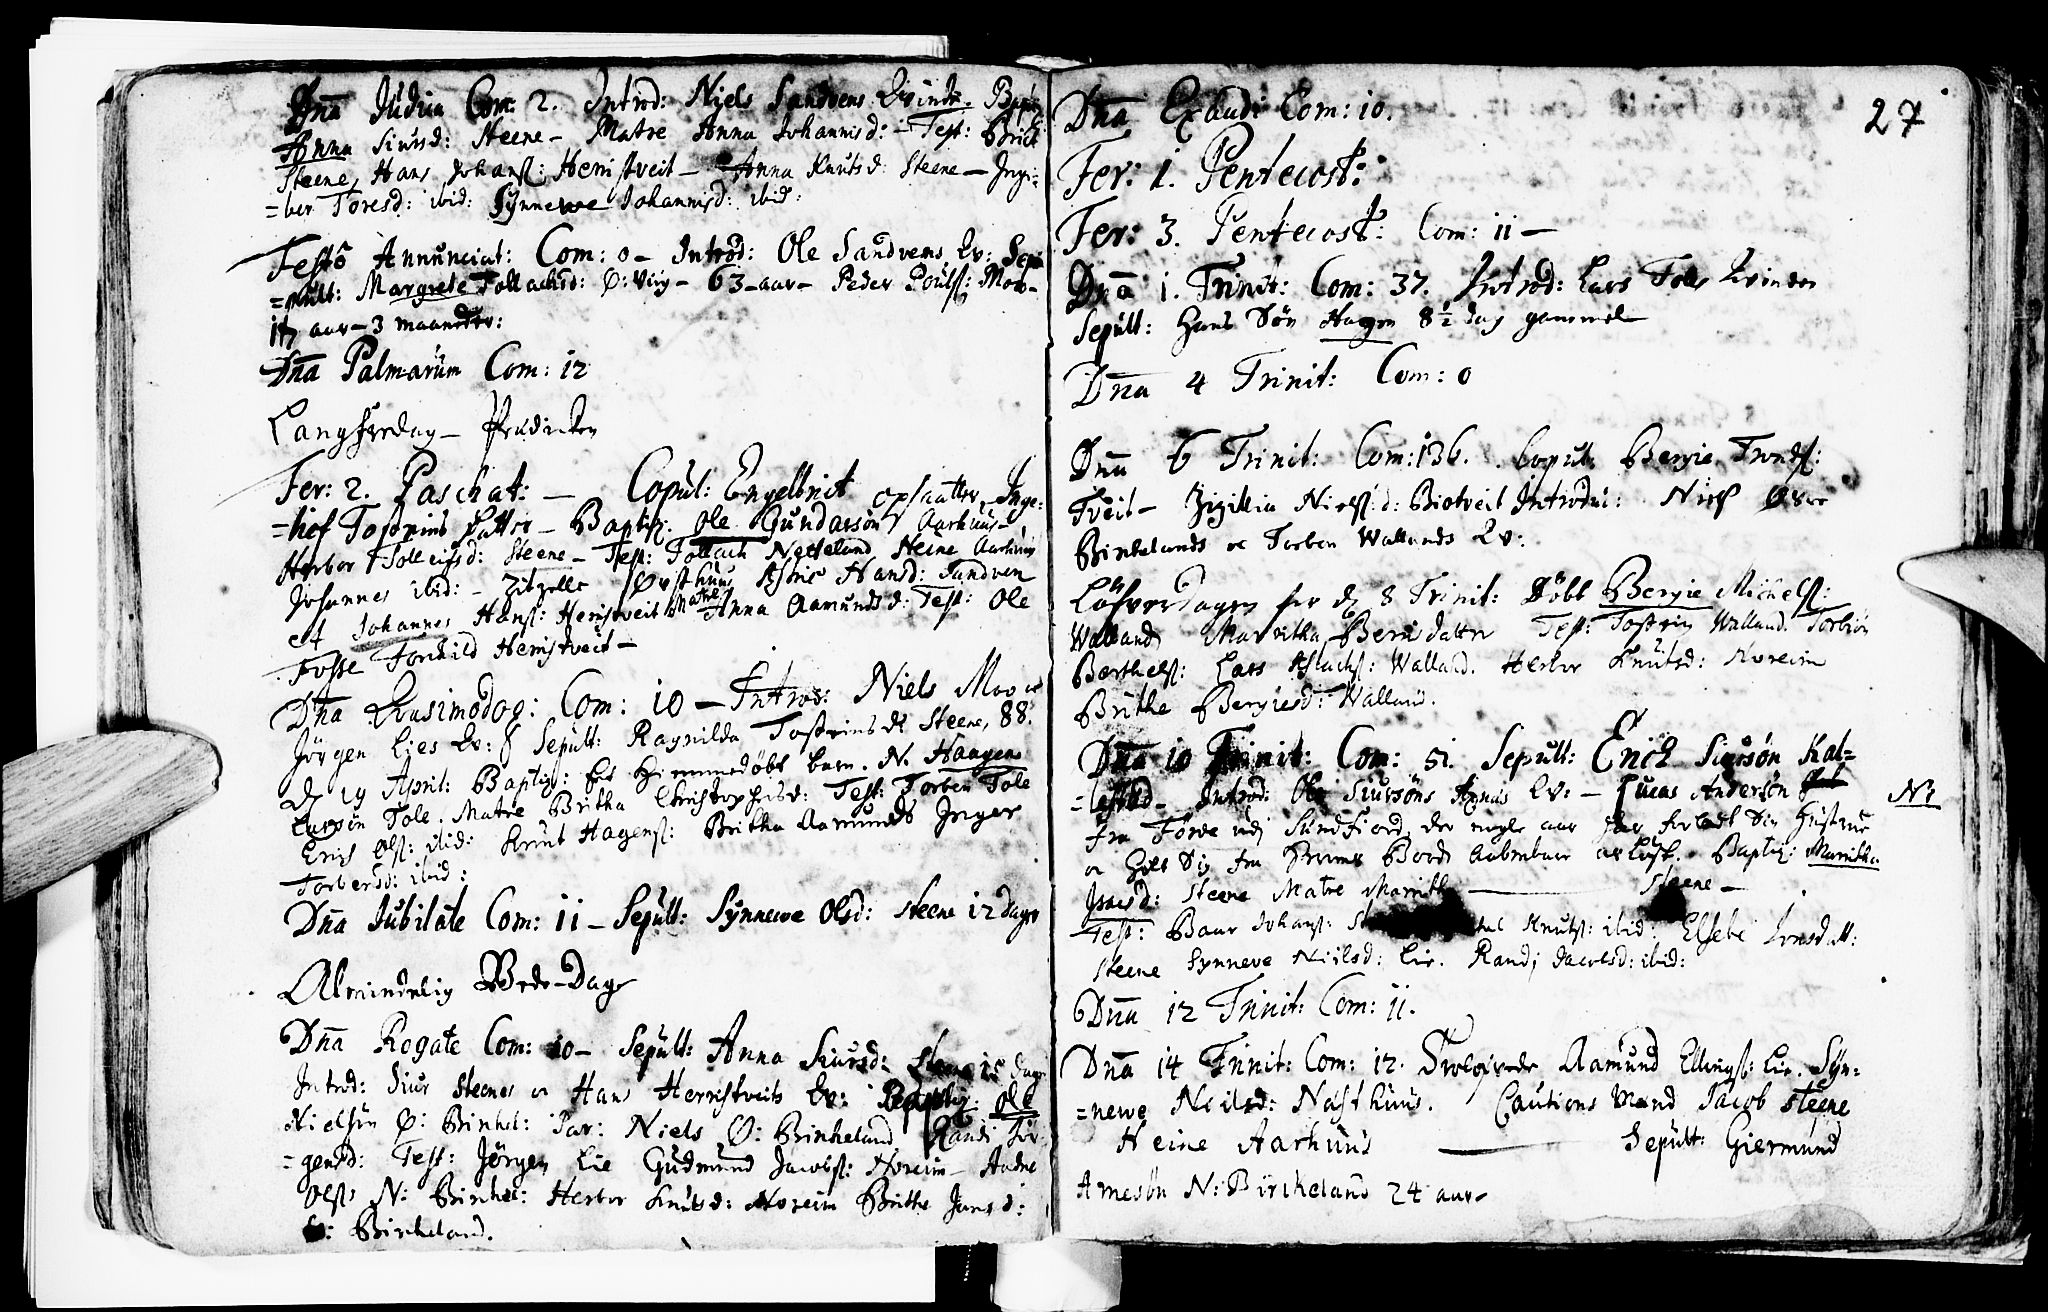 Dña Judica Com: 2. Introd: Niels Sandvens Qvinde. Bapt:
Anna Siursd: Steene – Matre Anna Johannisd: – Test: Brich
Steene, Hans Johanß: Hemstveit – Anna Knutsd: Steene – Inge=
=ber Toresd: ibid: Synnewe Johannisd: ibid:
Festo Annunciat: Com: 0 – Introd: Ole Sandvens Qv: Sep=
=pult: Margrete Tollachsd: Ø: Vig – 63 – aar – Peder Poulß: Moe –
aar – 3 maaneder:
Dña Palmarum Com: 12
Langfredag – Prædicken
Fer: 2. Paschat: – Copul: Engelbrit opsaatter, Inge=
=lief Tostens datter – Baptiz: Ole Gundarsøn Aarhuus –
Herbor Tolleifsd: Steene – Test: Tollach Netteland, Heine Aarhuus
Johannes ibid: – Zitzelle Øysthuus Hansd: Sandven
et Johannes Hanß: Hemstveit Matre Anna Aamundsd: Test: Ole
Fosse Torchild Hemstveit –
Dña Qvasimodog: Com: 10 – Introd: Niels Moe
Jørgen Lies Qv: Sepult: Ragnilda Tostens d: Steene, 88.
D 19 April: Baptiz: Et Hiemmedøbt barn. N. Haagen
Larsøn Tole. Matre Britha Christophersd: Test: Torben Tole
Erich Olß: ibid: Knut Hagenß: Britha Aamunds Inger
Torbensd: ibid:
Dña Jubilate Com: 11 – Sepult: Synnewe Olsd: Steene 12 dage
Almindelig Bede-Dag
Dña Rogate Com: 10 – Sepult: Anna Siursd: Steene 15 dage
Introd: Siur Steenes oc Hans Hemstveits Qv: Baptiz: Ole
Nielsøn Ø: Birkel: Par: Niels Ø: Birkeland Randi Jør=
=gensd: Test: Jørgen Lie Gudmund Jacobß: Noreim – Andne
Olß: N: Birkel: Herbor Knutsd: Noreim Brithe Jansd:
Birkeland.
27
Dña Exaudi Com: 10.
Fer: 1. Pentecost:
Fer: 3. Pentecost: Com: 11 –
Dña 1. Trinit: Com: 37. Introd: Lars Toles Qvinde
Sepult: Hans Søn Hagen 8½ dag gammel
Dña 4 Trinit: Com: 0
Dña 6 Trinit: Com: 136. Copul: Bergie Trondß:
Tveit – Zigillia Nielß:d: Biotveit Introdu: Niels Øvre
Birkelands oc Torben Wallands Qv:
Løfverdagen for d 8 Trinit: Døbt Bergie Michelß:
Walland Marritha Bersdatter Test: Tosten Walland. Torbiøn
Berthelß: Lars Aslachß: Walland. Herbor Knutsd: Noreim
Brithe Bergiesd: Walland.
Dña 10 Trinit: Com: 51. Sepult: Erich Siursøn Kal=
=lestad – Introd: Ole Siursøns Agnas Qv: – Lucas Andersøn
fra Førde udj Sundfiord, der nogle aar har forladt Sin Hustrue
oc Holt Sig fra Herrens Bord Aabenbare Baptiz: Marritha
Steene Matre Marritha – Steene –
Test: Baar Johanß: Knutß: ibid: Elsebe Iversdatt:
Steene Synneve Nielsd: Lie. Randj Jacobsd: ibid:
Nᵗ
Dña 12 Trinit: Com: 11.
Dña 14 Trinit: Com: 12. Trolofvede Aamund Ellingß: Lie. Syn=
=newe Neilsd: Næsthuus. Cautions Mænd Jacob Steene
Heine Aarhuus – Sepult: Giermund
Arnesøn N: Birckeland 24 aar –